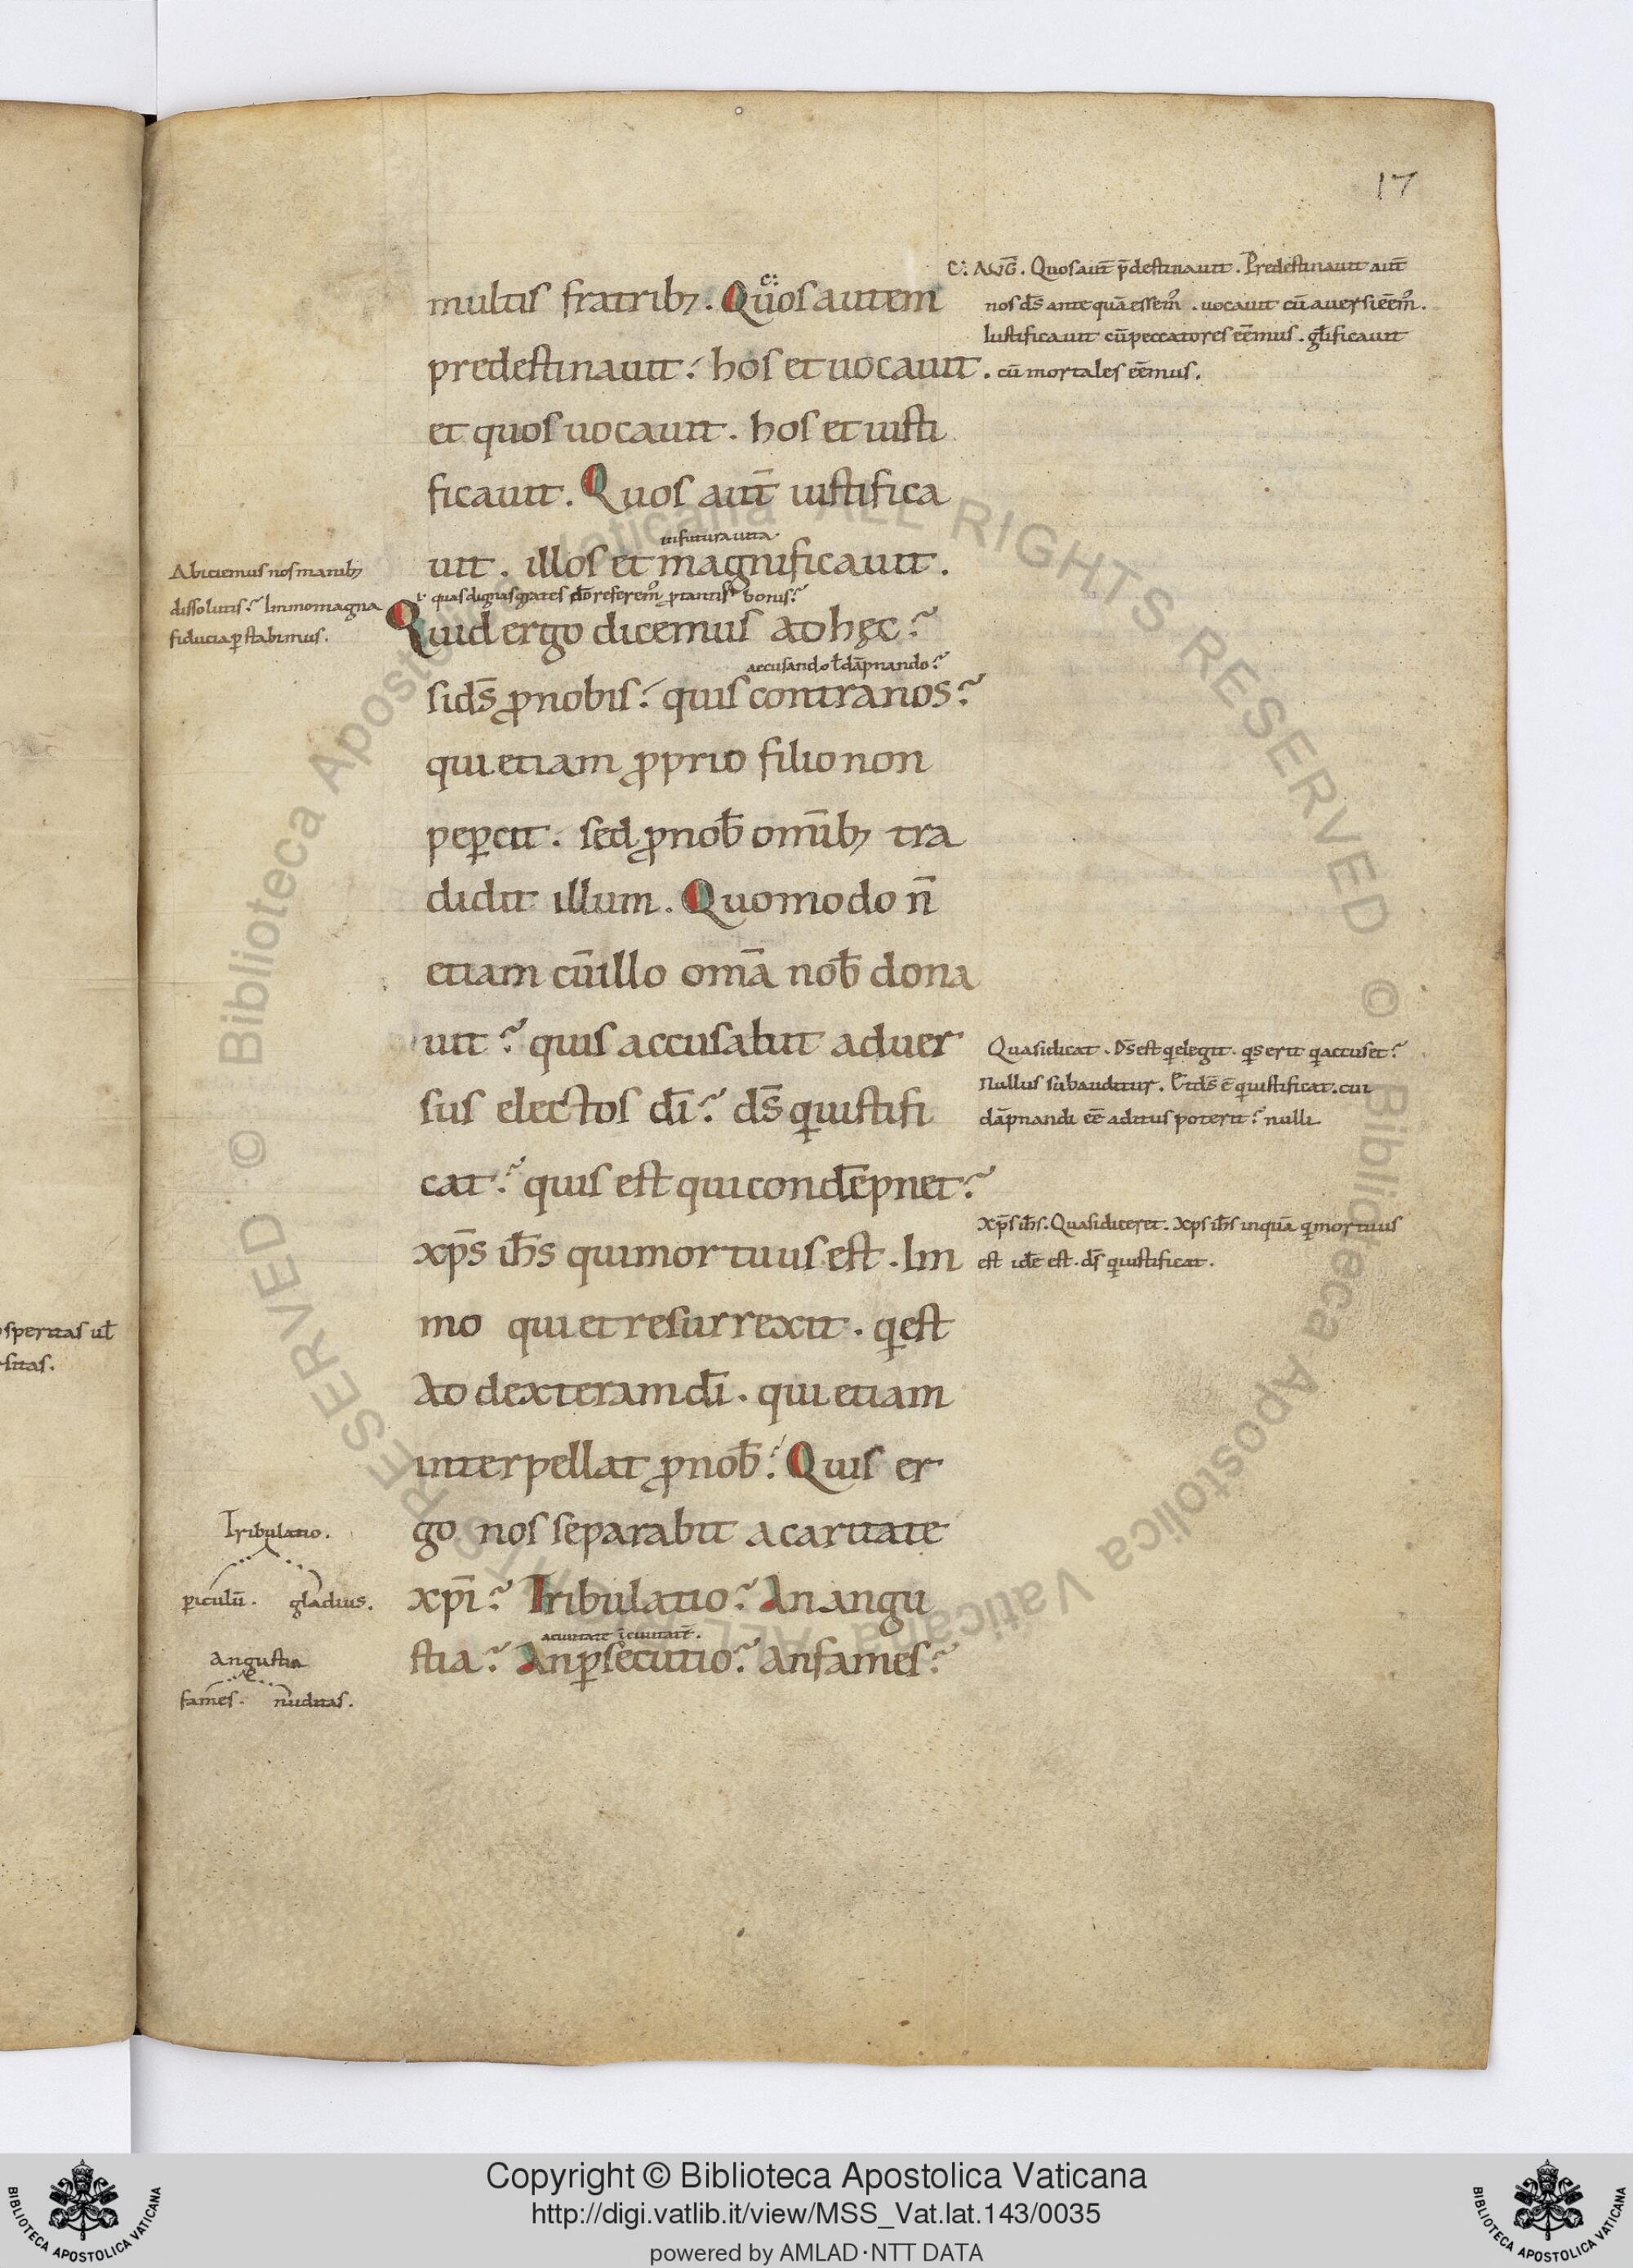 17
C. AUḠ. Quos aut̄ p̄destinauit. Predestinauit aut̄
nos d̄s ante quā essem᷒. uocauit cū auersi eēm᷒.
Iustificauit cū peccatores eēmus. gl̄ificauit
cū mortales eēmus.
multis fratrib; . Quos autem
predestinauit: hos et uocauit.
et quos uocauit. hos et iusti
ficauit. Quos aut̄ iustifica
in futura uita.
uit. illos et magnificauit.
Abiciemus nos manib;
dissolutis? Immo magna
fiducia ꝑstabimus.
quas dignas grates dō referem᷒ ꝓ tantis bonis?
Quid ergo dicemus ad hęc?
accusando ł dāpnando?
si d̄s ꝓ nobis? quis contra nos?
qui etiam ꝓprio filio non
peꝑcit. sed ꝓ nob̄ omīb; tra
didit illum. Quomodo n̄
etiam cū illo om̄a nob̄ dona
uit? quis accusabit aduer
sus electos dī? d̄s qͥ iustifi
cat? quis est qui condēpnet?
xp̄s ih̄s qui mortuus est. Im
mo qui et resurrexit. qͥ est
ad dexteram dī. qui etiam
interpellat ꝓ nob̄? Quis er
go nos separabit a caritate
xp̄i? Tribulatio? An angu
a ciuitate ī ciuitatē.
stia? An ꝑsecutio? an fames?
Quasi dicat. D̄s est qͥ elegit. qͥs erit qͥ accuset?
Nullus subauditur. Et id̄s ē qͥ iustificat. cui
dāpnandi eē aditus poterit? nulli.
xp̄s ih̄s. Quasi diceret. xp̄s ih̄s inquā qͥ mortuus
est idē est. d̄s qͥ iustificat.
Tribulatio.
ꝑiculū. gladius.
Angustia
fames. nuditas.
speritas ul̄
sitas.
© Biblioteca Apostolica Vaticana ALL RIGHTS RESERVED © Biblioteca Apostolica Vaticana ALL RIGHTS RESERVED
BIBLIOTECA APOSTOLICA VATICANA
Copyright © Biblioteca Apostolica Vaticana
http://digi.vatlib.it/view/MSS_Vat.lat.143/0035
powered by AMLAD·NTT DATA
BIBLIOTECA APOSTOLICA VATICANA